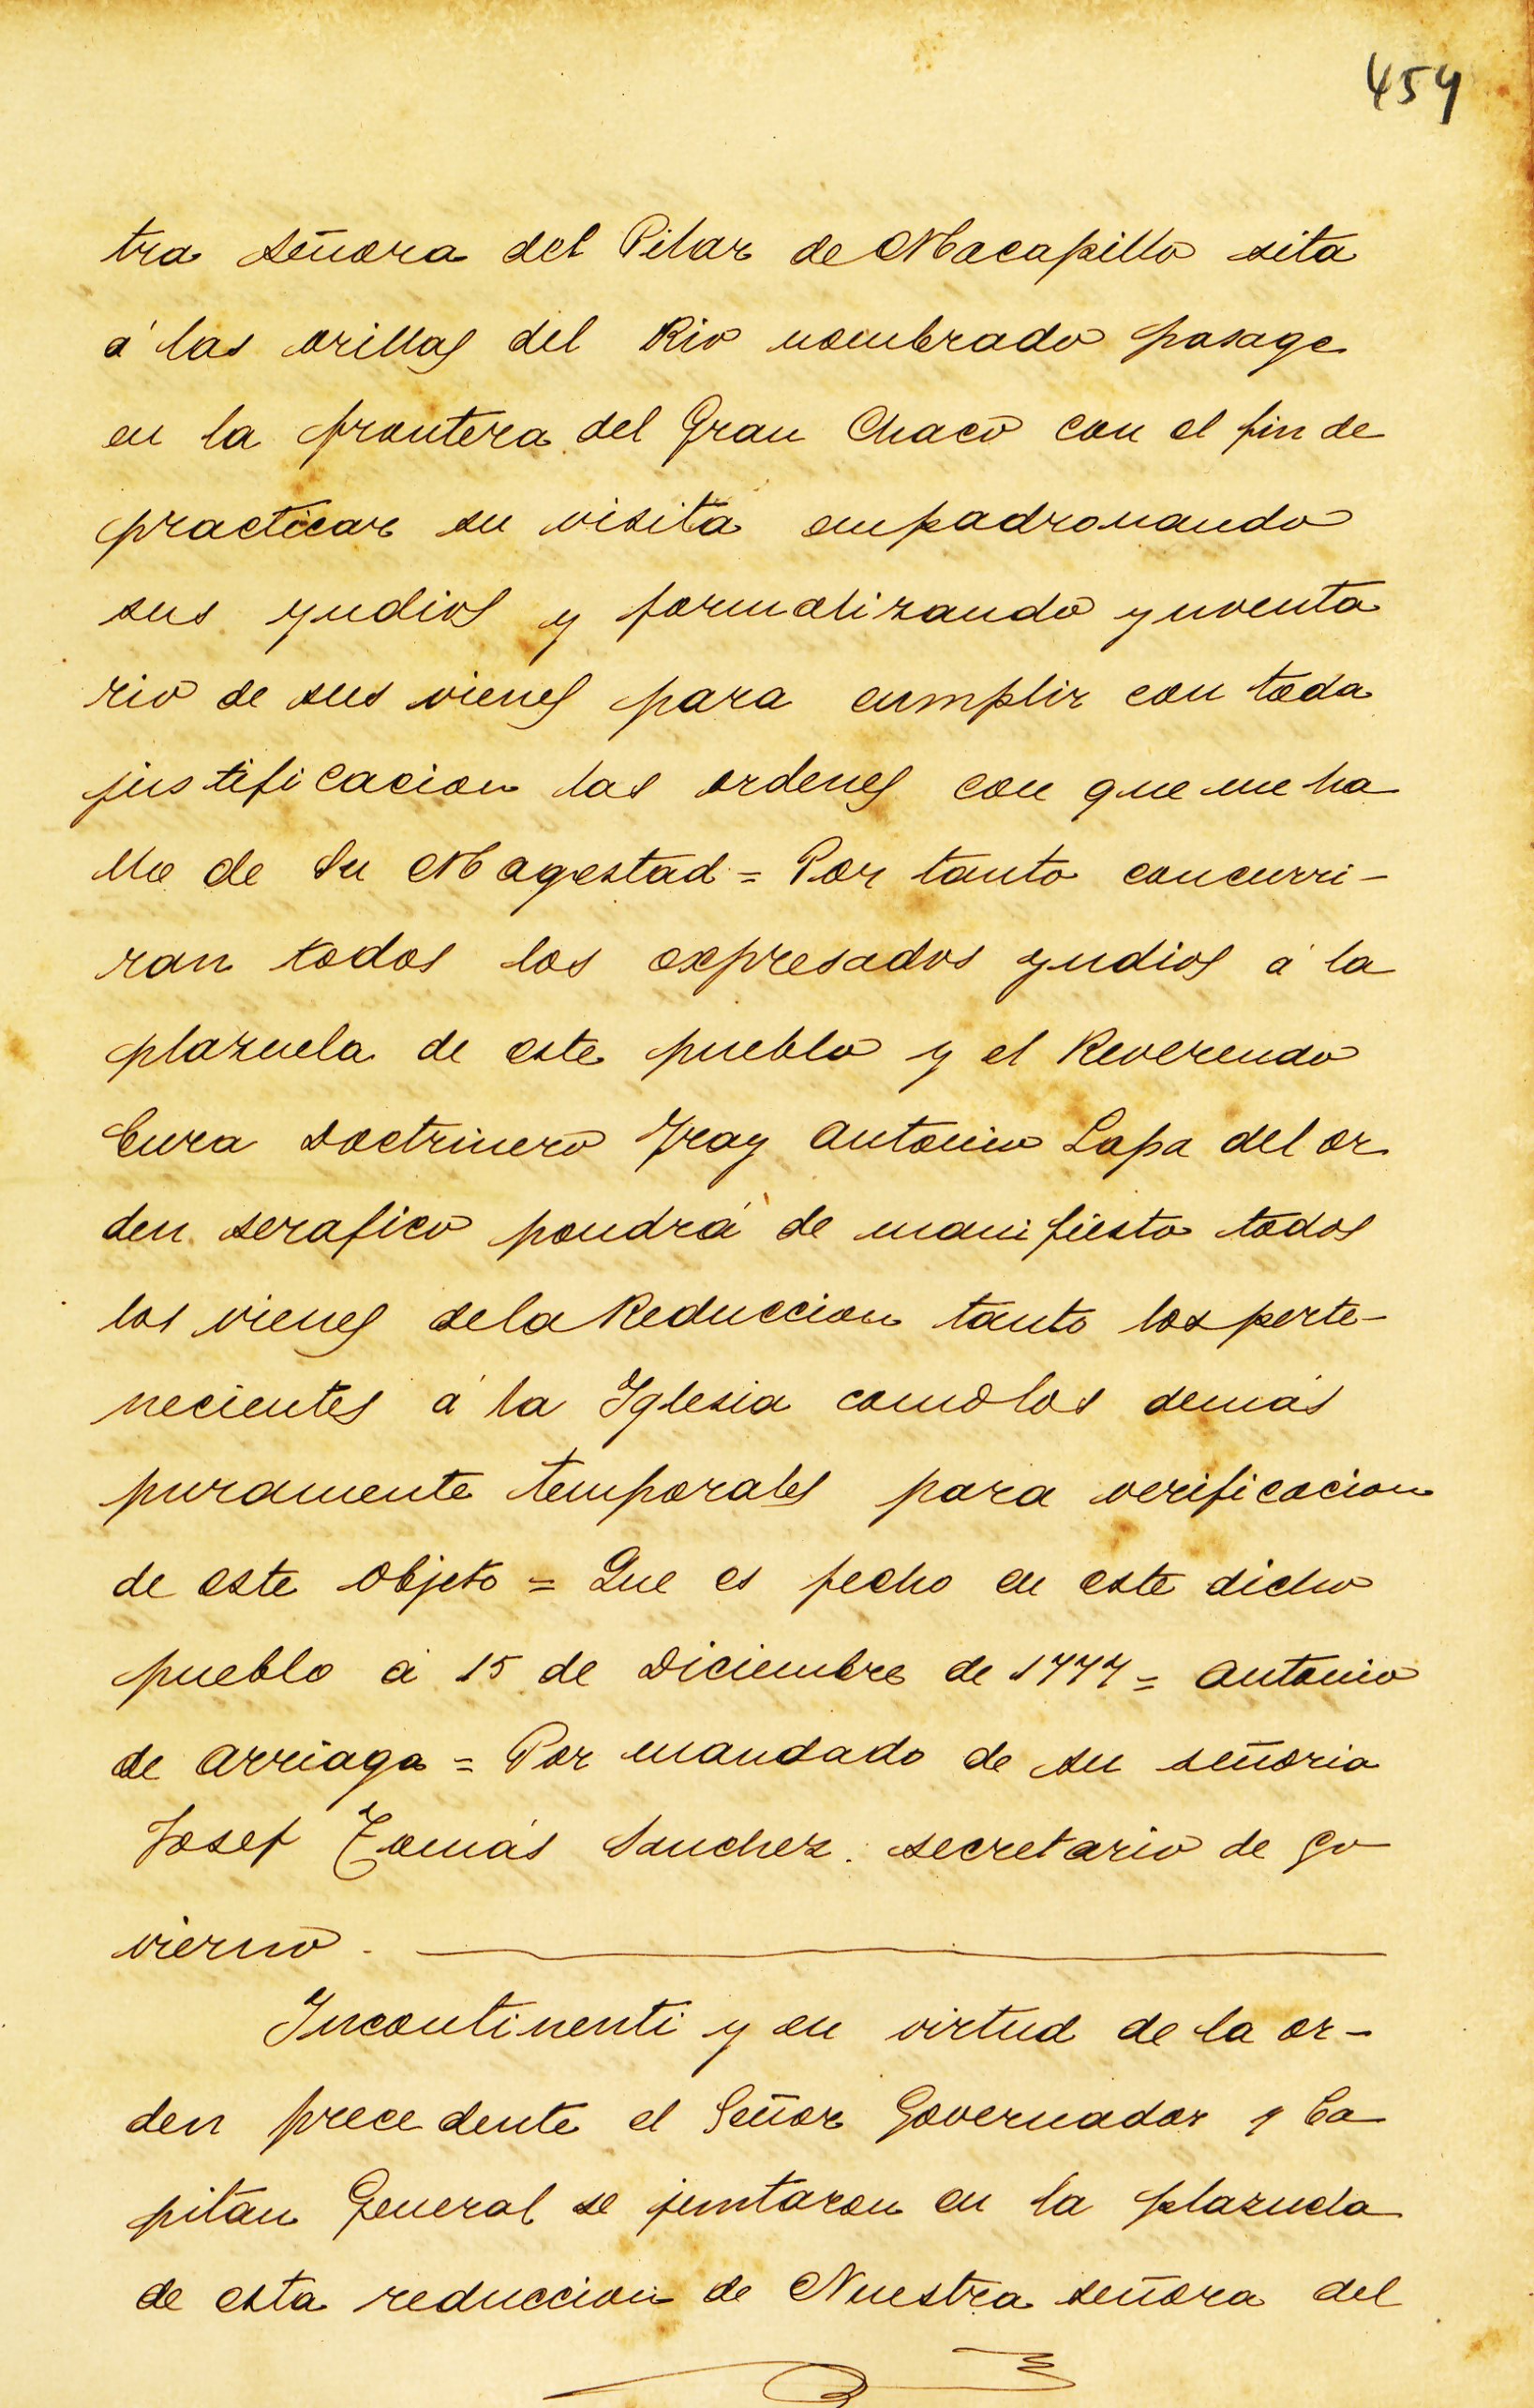 459
tra señora del Pilar de Macapillo sita
á las orillas del Rio nombrado pasage
en la frontera del Gran Chaco con el fin de
practicar su visita empadronando
sus yndios y formalizando ynventa
rio de sus vienes para cumplir con toda
justificacion las ordenes con que me ha
llo de Su Magestad = Por tanto concurri-
ran todos los expresados yndios á la
plazuela de este pueblo y el Reverendo
Cura Doctrinero Fray Antonio Lapa del or
den serafico pondrá de manifiesto todos
los vienes dela Reduccion tanto los perte-
necientes á la Iglesia como los demás
puramente temporales para verificacion
de este objeto = Que es fecho en este dicho
pueblo á 15 de Diciembre de 1777 = Antonio
de Arriaga = Por mandado de su señoria
Josef Tomás Sanchez. secretario de go
vierno.
Incontinenti y en virtud de la or-
den precedente el Señor Governador y Ca
pitan General se juntaron en la plazuela
de esta reduccion de Nuestra señora del